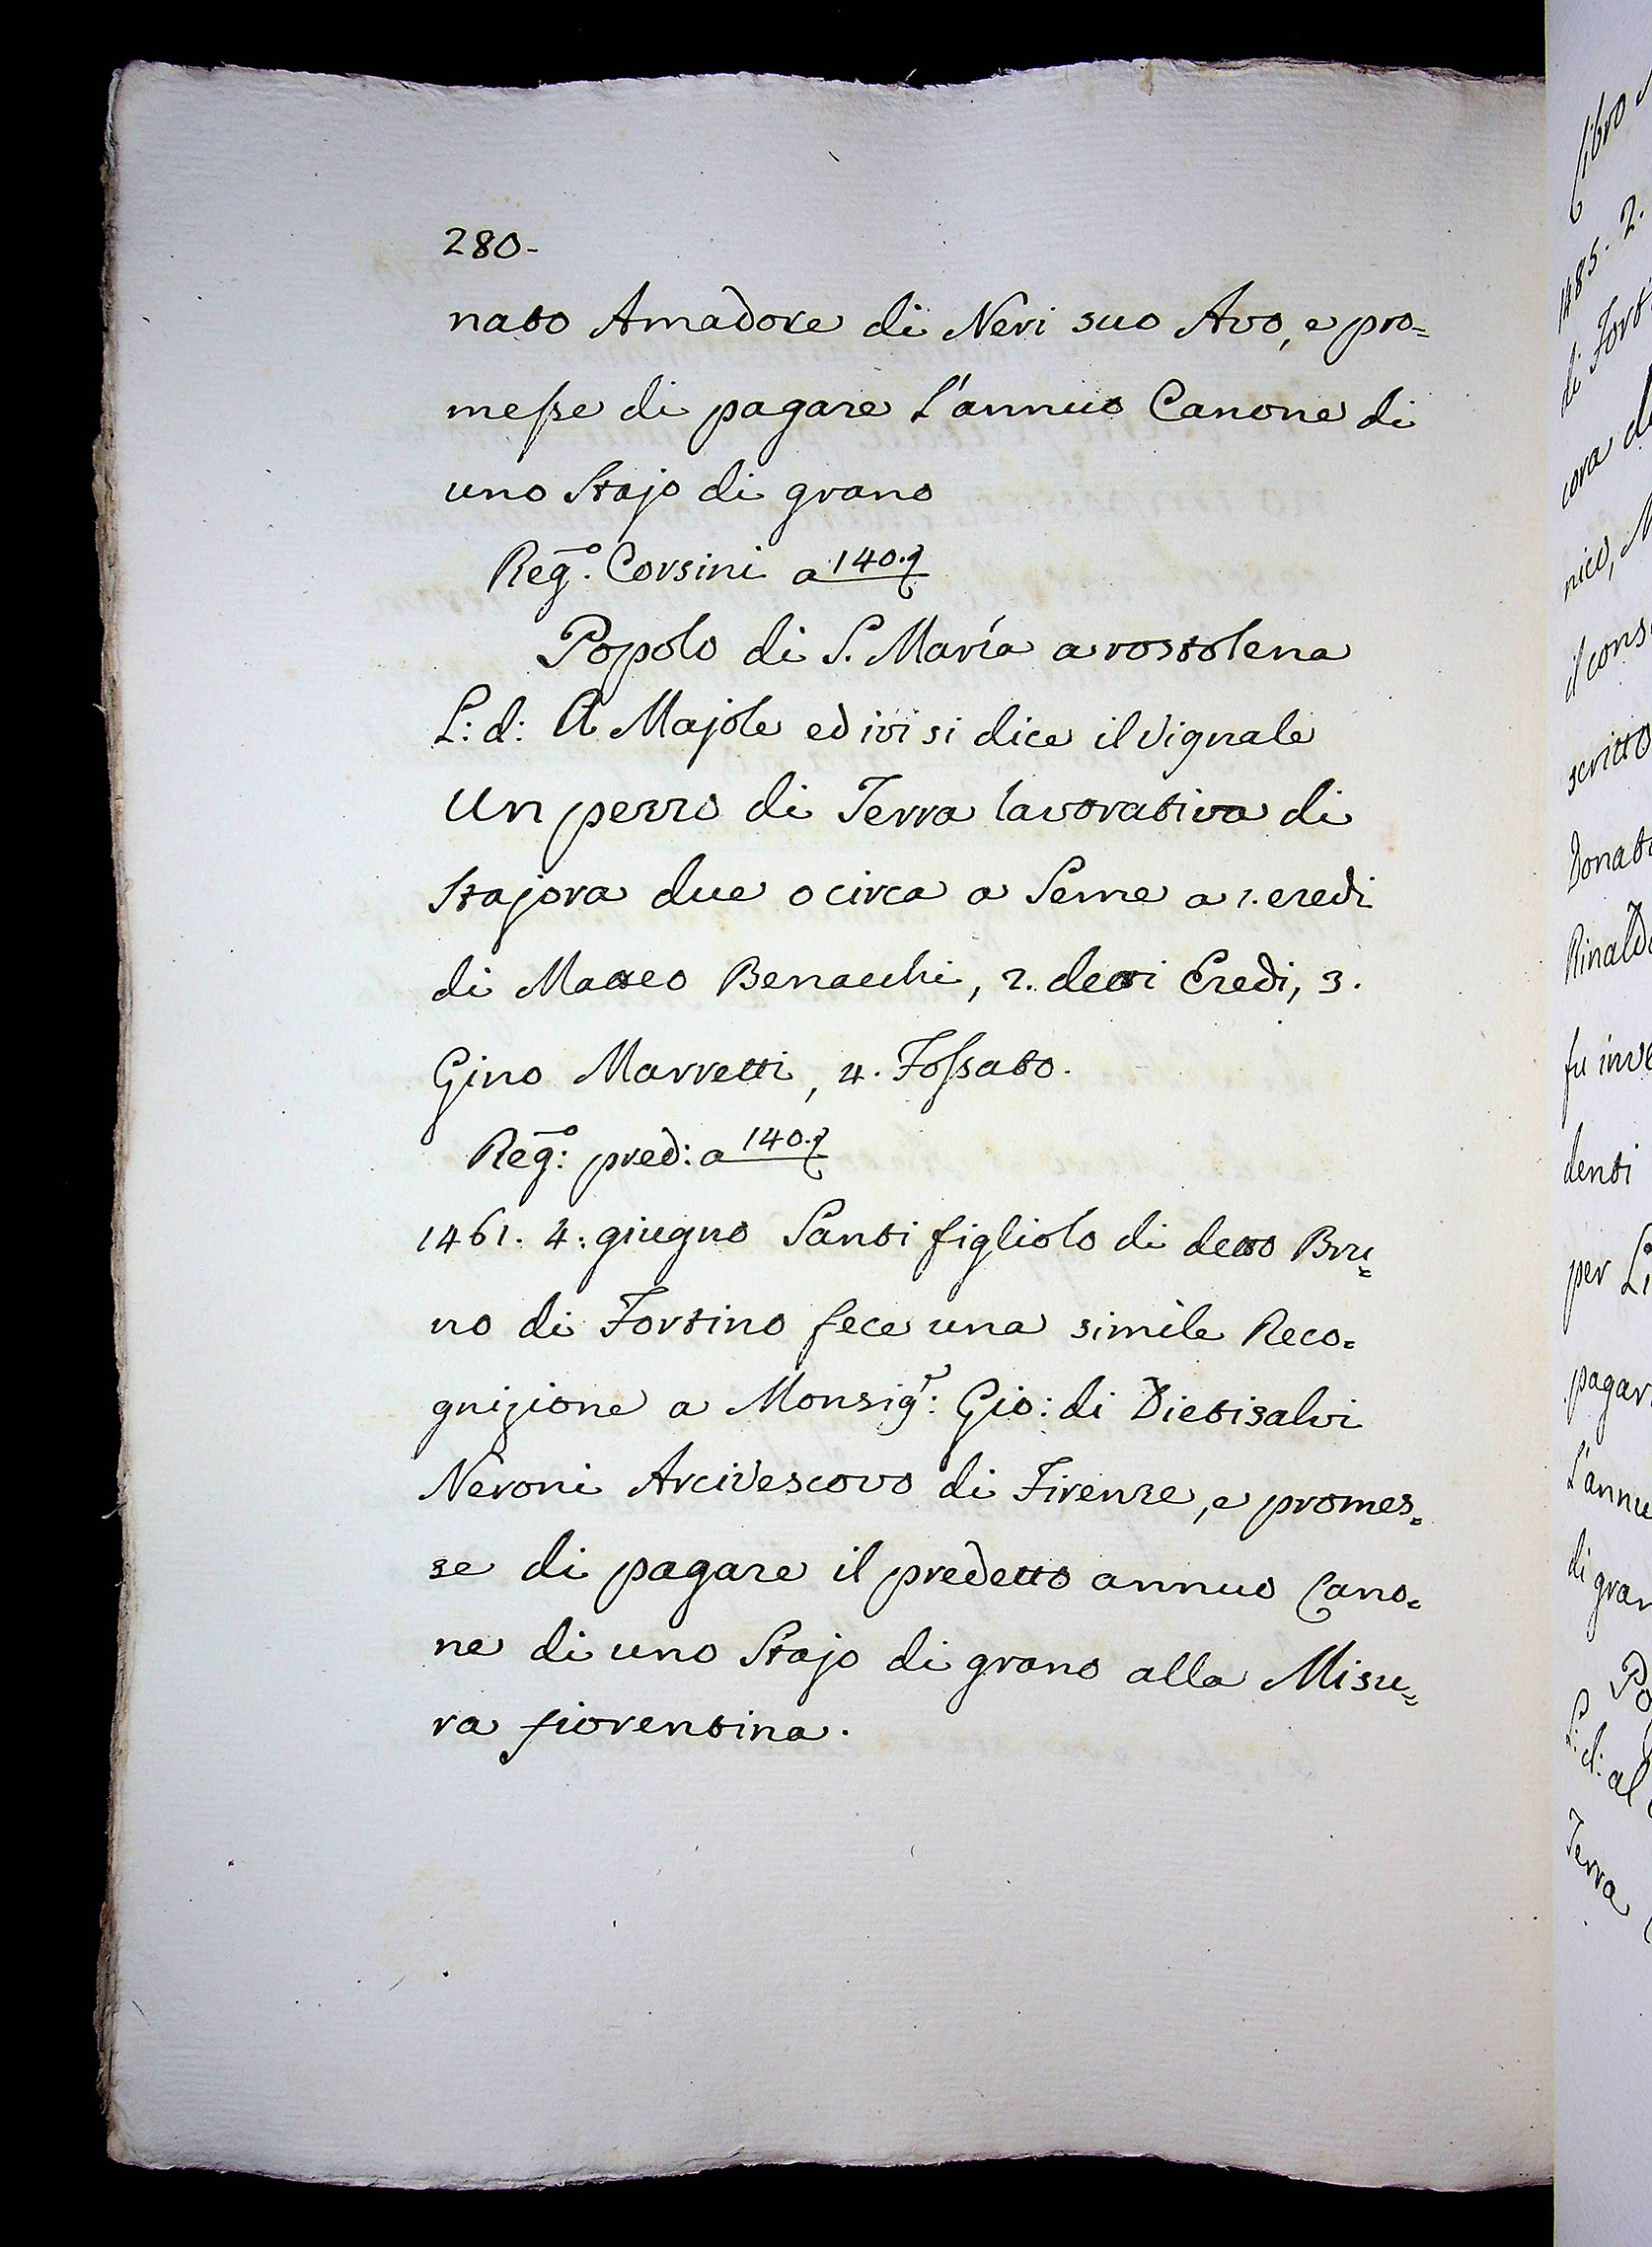 280-
nato Amadore di Neri suo Avo, e pro=
messe di pagare l'annuo Canone di
uno Stajo di grano
Reg.º Corsini a 140.
Popolo di S. María a rostolena
L: d: A Majole ed ivi si dice il Vignale
Un pezzo di Terra lavorativa di
Stajora due o circa a Seme a 1. eredi
di Matteo Benacchi, 2. detti Eredi, 3.
Gino Marretti, 4. Fossato.
Reg:º pred: a 140.
1461. 4: giugno Santi figliolo di detto Bru=
no di Fortino fece una simile Reco=
gnizione a Monsig:r Gio: di Dietisalvi
Neroni Arcivescovo di Firenze, e promes=
se di pagare il predetto annuo Cano=
ne di uno Stajo di grano alla Misu=
ra fiorentina.
libro
1485. 2.
di
cora
nico,
scritto
fu
denti
per
di
Terra